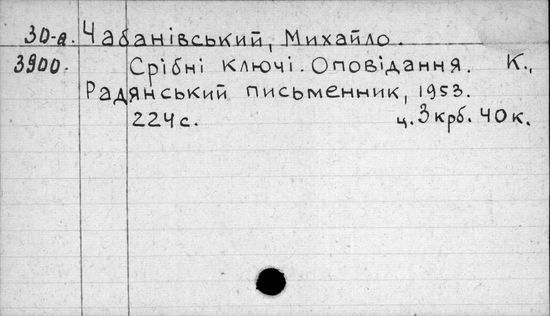 30-а. Чабанівський, Михайло.
3900. Срібні ключі. Оповідання. К.,
Радянський письменник, 1953.
224с. ц. 3 крб. 40 к.